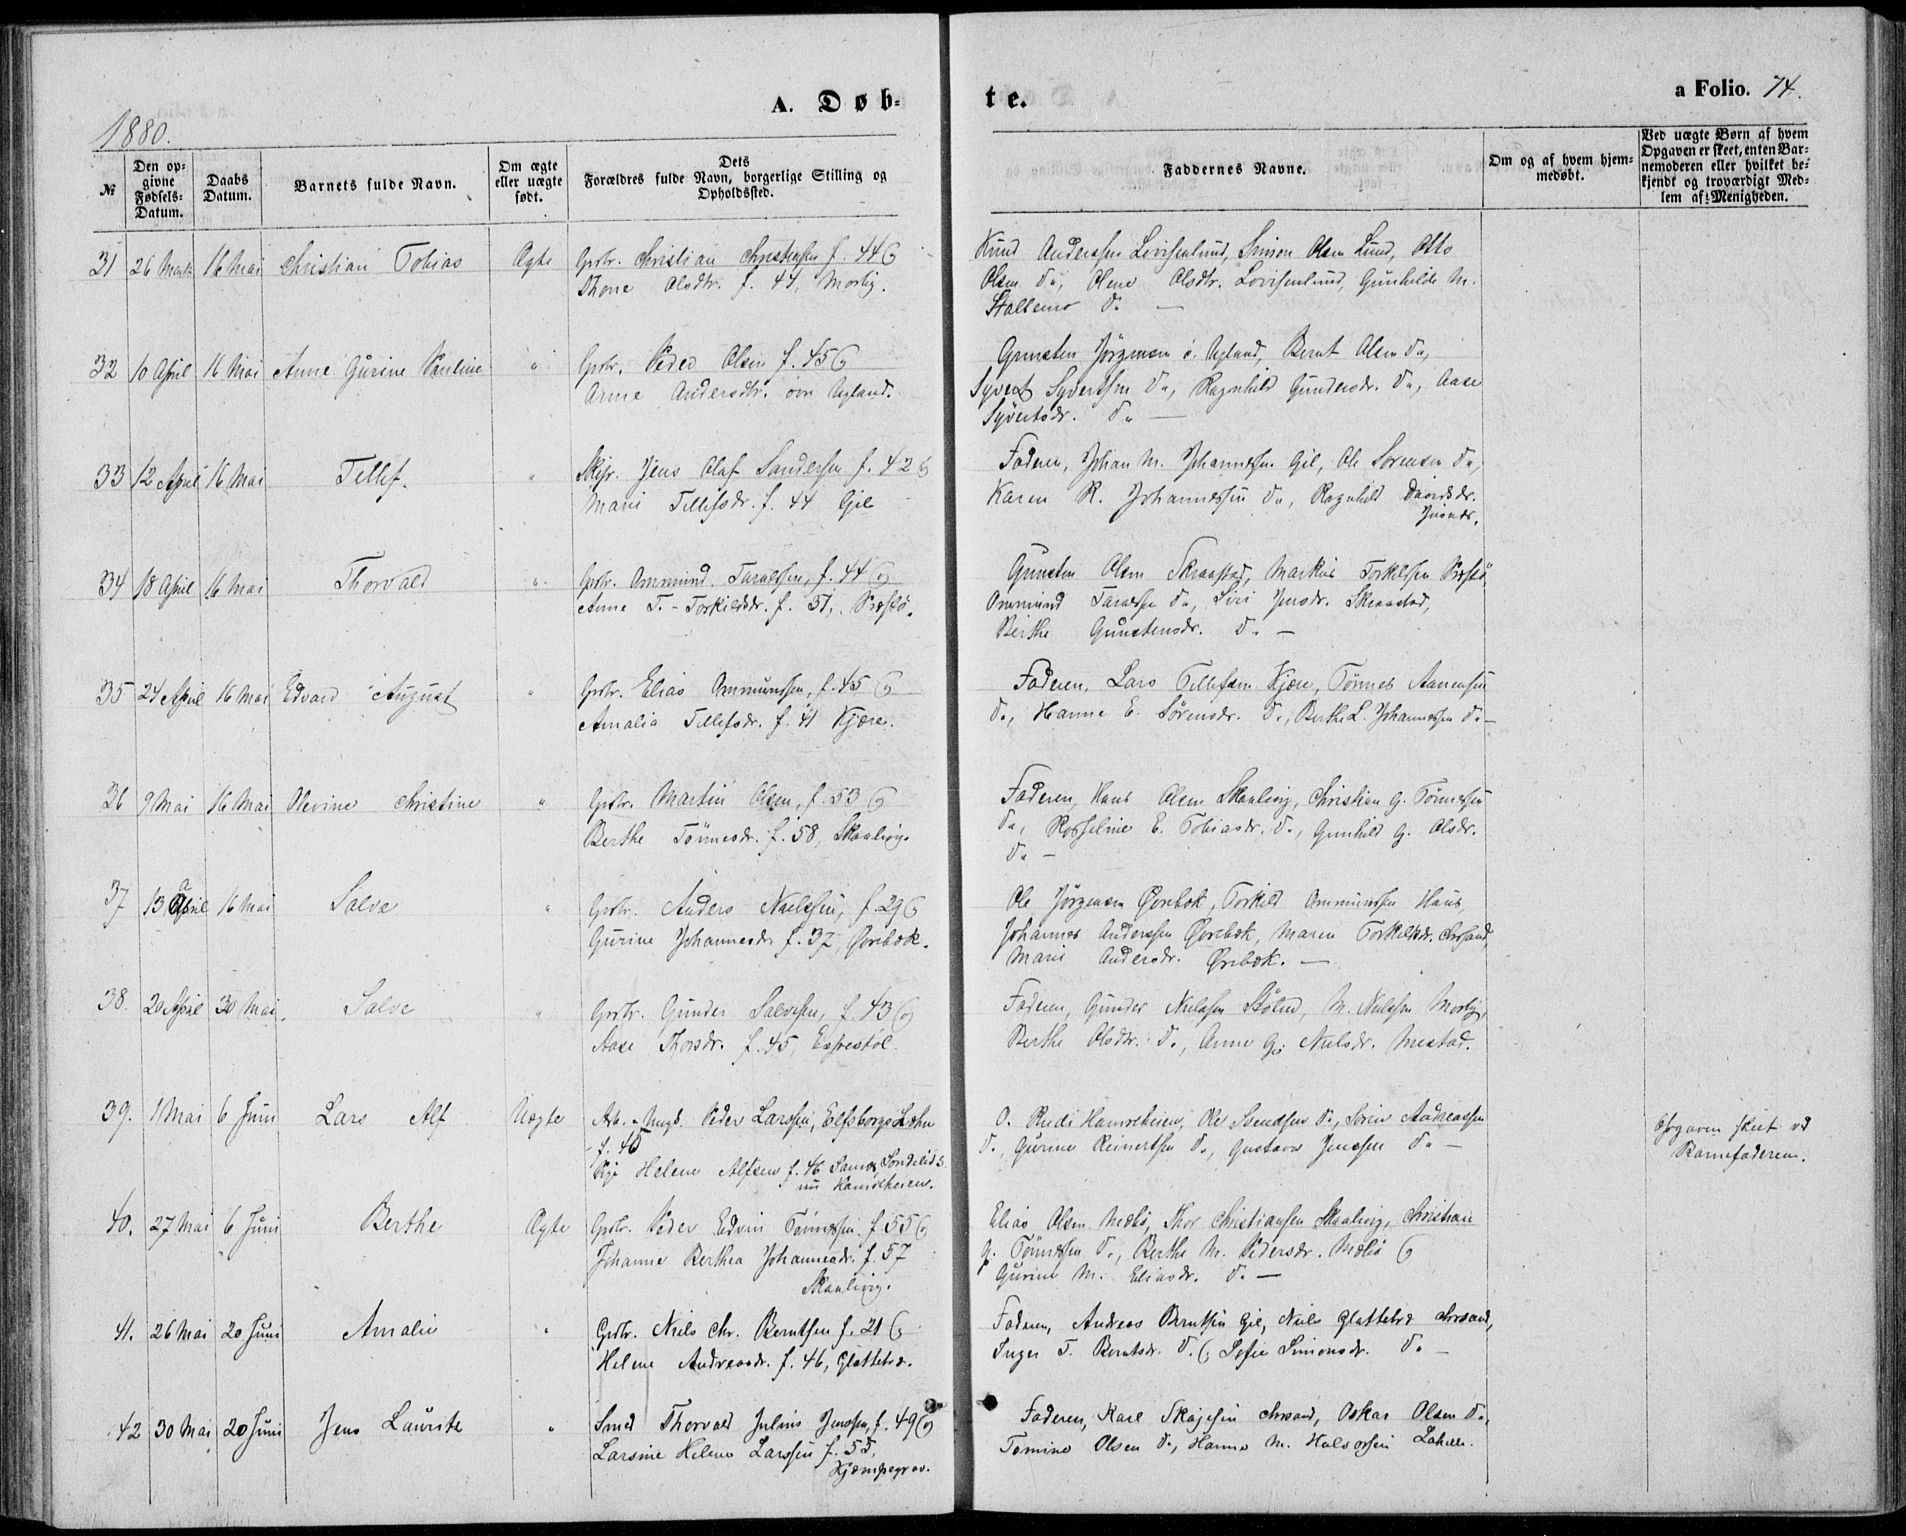 A. Døb-
te.
a Folio. 74.
1880.
№
Den op-
givne
Fødsels-
Datum.
Daabs
Datum.
Barnets fulde Navn.
Om ægte
eller uægte
født.
Dets
Forældres fulde Navn, borgerlige Stilling og
Opholdssted.
Faddernes Navne.
Om og af hvem hjem-
medøbt.
Ved uægte Børn af hvem
Opgaven er skeet, enten Bar-
nemoderen eller hvilket be-
kjendt og troværdigt Med-
lem af Menigheden.
31 26 Marts 16 Mai Christian Tobias Ægte Gbr. Christian Christensen f. 44 og
Thone Olsdtr. f. 44, Moslig.
Knud Anderssen Lovisenlund, Simon Olsen Lund, Otto
Olsen Do, Olene Olsdtr. Lovisenlund, Gunhilde M.
Stallemo Do —
32 10 April 16 Mai Anne Gurine Pauline " Gbr. Peder Olsen f. 45 og
Anne Andersdtr. øvr Augland.
Gunsten Jørgensen ø. Augland, Bernt Olsen Do,
Syvert Syvertsen Do, Ragnhild Gundersdr. Do, Aase
Syvertsdr. Do —
33 12 April 16 Mai Tellef. " Skpr. Jens Olaf Sandersen f. 42 og
Marie Tellefsdr. f. 44 Gil
Faderen, Johan M. Johannessen Gil, Ole Sørensen Do,
Karen R. Johannessen Do, Ragnhild Davidsdr.
34 18 April 16 Mai Thorvald " Gbr. Ommund Taraldsen, f. 44 og
Anne T. Torkildsdr. f. 51, Præstø.
Gunsten Olsen Skraastad, Markus Torkilsen Præstø
Ommund Taraldsen Do, Siri Jensdr. Skraastad,
Berthe Gunstensdr. Do —
35 24 April 16 Mai Edvard August " Gbr. Elias Ommundsen, f. 45 og
Amalia Tellefsdr. f. 41 Kjære.
Faderen, Lars Tellefsen Kjære, Tønnes Aanensen
Do, Hanne E. Sørensdr. Do, Berthe L. Johannessen Do —
36 9 Mai 16 Mai Olevine Christine " Gbr. Martin Olsen, f. 53 og
Berthe Tønnesdr. f. 58, Skaalevig.
Faderen, Hans Olsen Skaalevig, Christian G. Tønnesen
Do, Rosseline E. Tobiasdr. Do, Gunhild G. Olsdr.
Do —
37 13 April 16 Mai Salve " Gbr. Anders Nielssen, f. 29 og
Gurine Johannesdr f. 37, Ørebæk.
Ole Jørgensen Ørebæk, Torkild Ommundsen Haus,
Johannes Anderssen Ørebæk, Maren Torkildsdr. Chrsand,
Marie Andersdr. Ørebæk. —
38. 20 April 30 Mai Salve " Gbr. Gunder Salvesen, f. 43 og
Aase Thorsdr. f. 45, Espestøl.
Faderen, Gunder Nielssen Stølen, M. Nielssen Moslig,
Berthe Olsdtr. Do, Anne G. Nielsdr. Mestad.
39. 1 Mai 6 Juni Lars Alf Uægte Arb. Ungk. Peder Larssen, Elfsborgs Læhn
f. 45
Pige Helene Alfsen f. 46 Søndelid
nu Hamreheien.
O. Rudi Hamreheien, Ole Svendsen Do, Søren Andreassen
Do, Gurine Reinertsen Do, Gustava Jenssen Do —
Opgaven skeet ved
Barnefaderen.
40. 27 Mai 6 Juni Berthe Ægte Gbr. Peder Edvin Tønnessen f. 55 og
Johanne Berthea Johannesdr. f. 57
Skaalevig.
Elias Olsen Mæbø, Thor Christiansen Skaalevig, Christian
G. Tønnessen Do, Berthe M. Pedersdr. Mæbø og
Gurine M. Eliasdr. Do —
41. 26 Mai 20 Juni Amalie " Gbr. Niels Chr. Berntsen f. 21 og
Helene Andreasdr. f. 46, Glattetræ.
Faderen, Andreas Berntsen Gil, Niels Glattetræ Chrsand,
Inger T. Berntsdr. Do og Sofie Simonsdr. Do —
42 30 Mai 20 Juni Jens Lauritz " Smed Thorvald Julius Jenssen, f. 49 og
Larsine Helene Larssen f. 55,
Kjæmpegrav.
Faderen, Karl Skajesen Chrsand, Oskar Olsen Do,
Tomine Olsen Do, Hanne M. Halvorsen Lahelle.